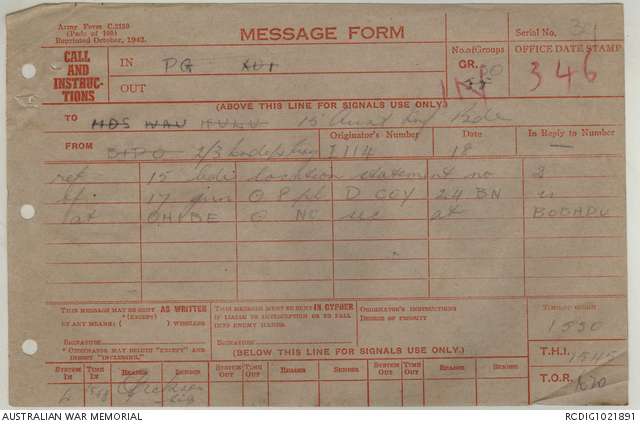 Army Form C.2136
(Pads of 100)
Reprinted October, 1942.
MESSAGE FORM
Serial No. 37
CALL AND INSTRUCTIONS
IN PG
OUT
No. of Groups
GR. 50
OFFICE DATE STAMP
IN 346
(ABOVE THIS LINE FOR SIGNALS USE ONLY.)
TO MDS WAU 15 Aust Inf Bde
FROM 2/3
Originator's Number
I 114
Date
18
In Reply to Number
—
ref 15 bde location statement no 2
of 17 jun O 8 pl D COY 24 BN is
at OHIBE O NO at BOBADU
THIS MESSAGE MAY BE SENT AS WRITTEN
*(EXCEPT)
BY ANY MEANS: ( ) WIRELESS
SIGNATURE
* ORIGINATOR MAY DELETE "EXCEPT" AND INSERT "INCLUDING."
THIS MESSAGE MUST BE SENT IN CYPHER
IF LIABLE TO INTERCEPTION OR TO FALL INTO ENEMY HANDS.
SIGNATURE
ORIGINATOR'S INSTRUCTIONS
DEGREE OF PRIORITY
1530
(BELOW THIS LINE FOR SIGNALS USE ONLY.)
T.H.I. 1545
SYSTEM IN
TIME IN
READER
SENDER
SYSTEM OUT
TIME OUT
READER
SENDER
SYSTEM OUT
TIME OUT
READER
SENDER
T.O.R.
AUSTRALIAN WAR MEMORIAL
RCDIG1021891